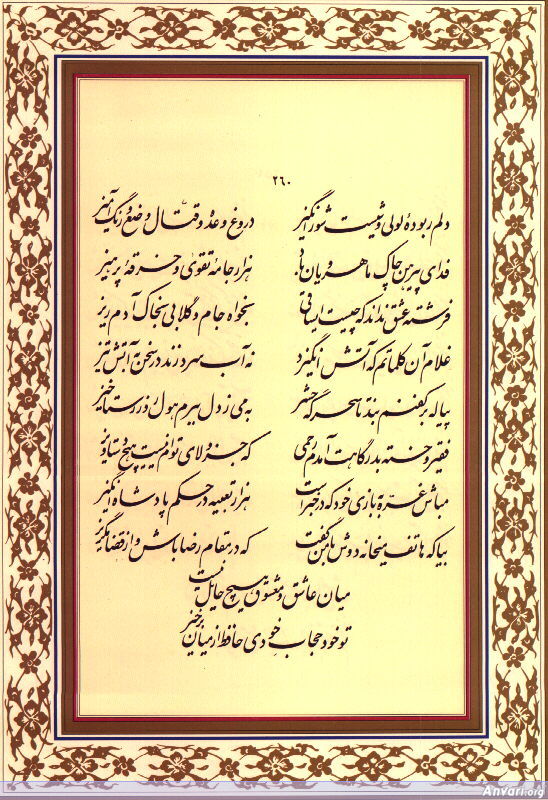 ۲۶۰
دلم ربوده لولی وشیست شورانگیز
دروغ وعده و قتال وضع و رنگ آمیز
فدای پیرهن چاک ماهرویان باد
هزار جامه تقوی و خرقه پرهیز
فرشته عشق نداند که چیست ای ساقی
بخواه جام و گلابی بخاک آدم ریز
غلام آن کلماتم که آتش انگیزد
نه آب سرد زند در سخن به آتش تیز
پیاله بر کفنم بند تا سحرگه حشر
به می ز دل ببرم هول روز رستاخیز
فقیر و خسته بدرگاهت آمدم رحمی
که جز ولای توام نیست هیچ دستاویز
مباش غره به بازی خود که در خبر است
هزار تعبیه در حکم پادشاه انگیز
بیا که هاتف میخانه دوش با من گفت
که در مقام رضا باش و از قضا مگریز
میان عاشق و معشوق هیچ حایل نیست
تو خود حجاب خودی حافظ از میان برخیز
Anvari.org